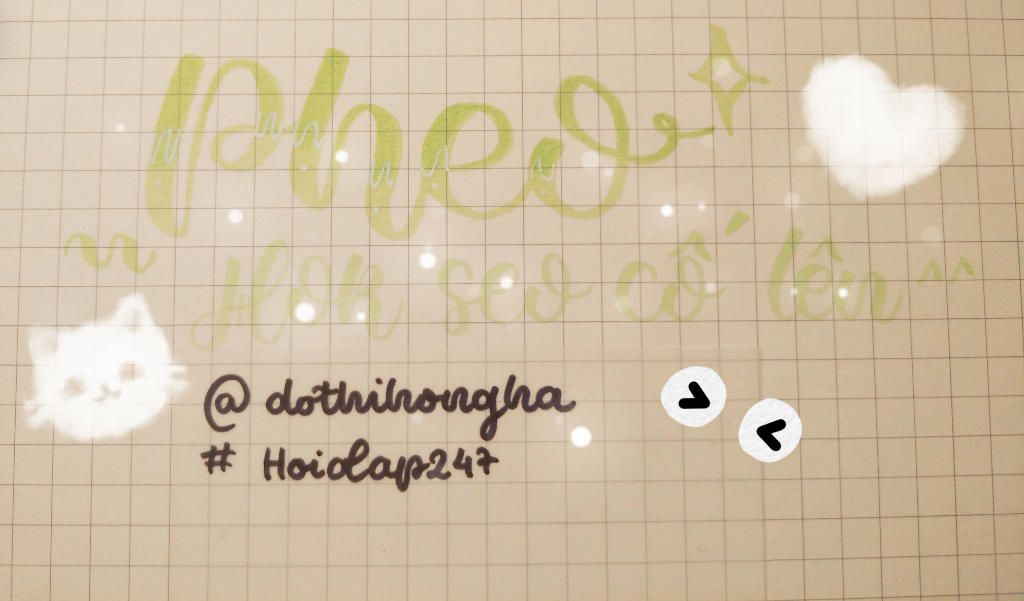 Pheo
~ Hok seo cố lên ~
@ dothihongha
# Hoidap247
> <